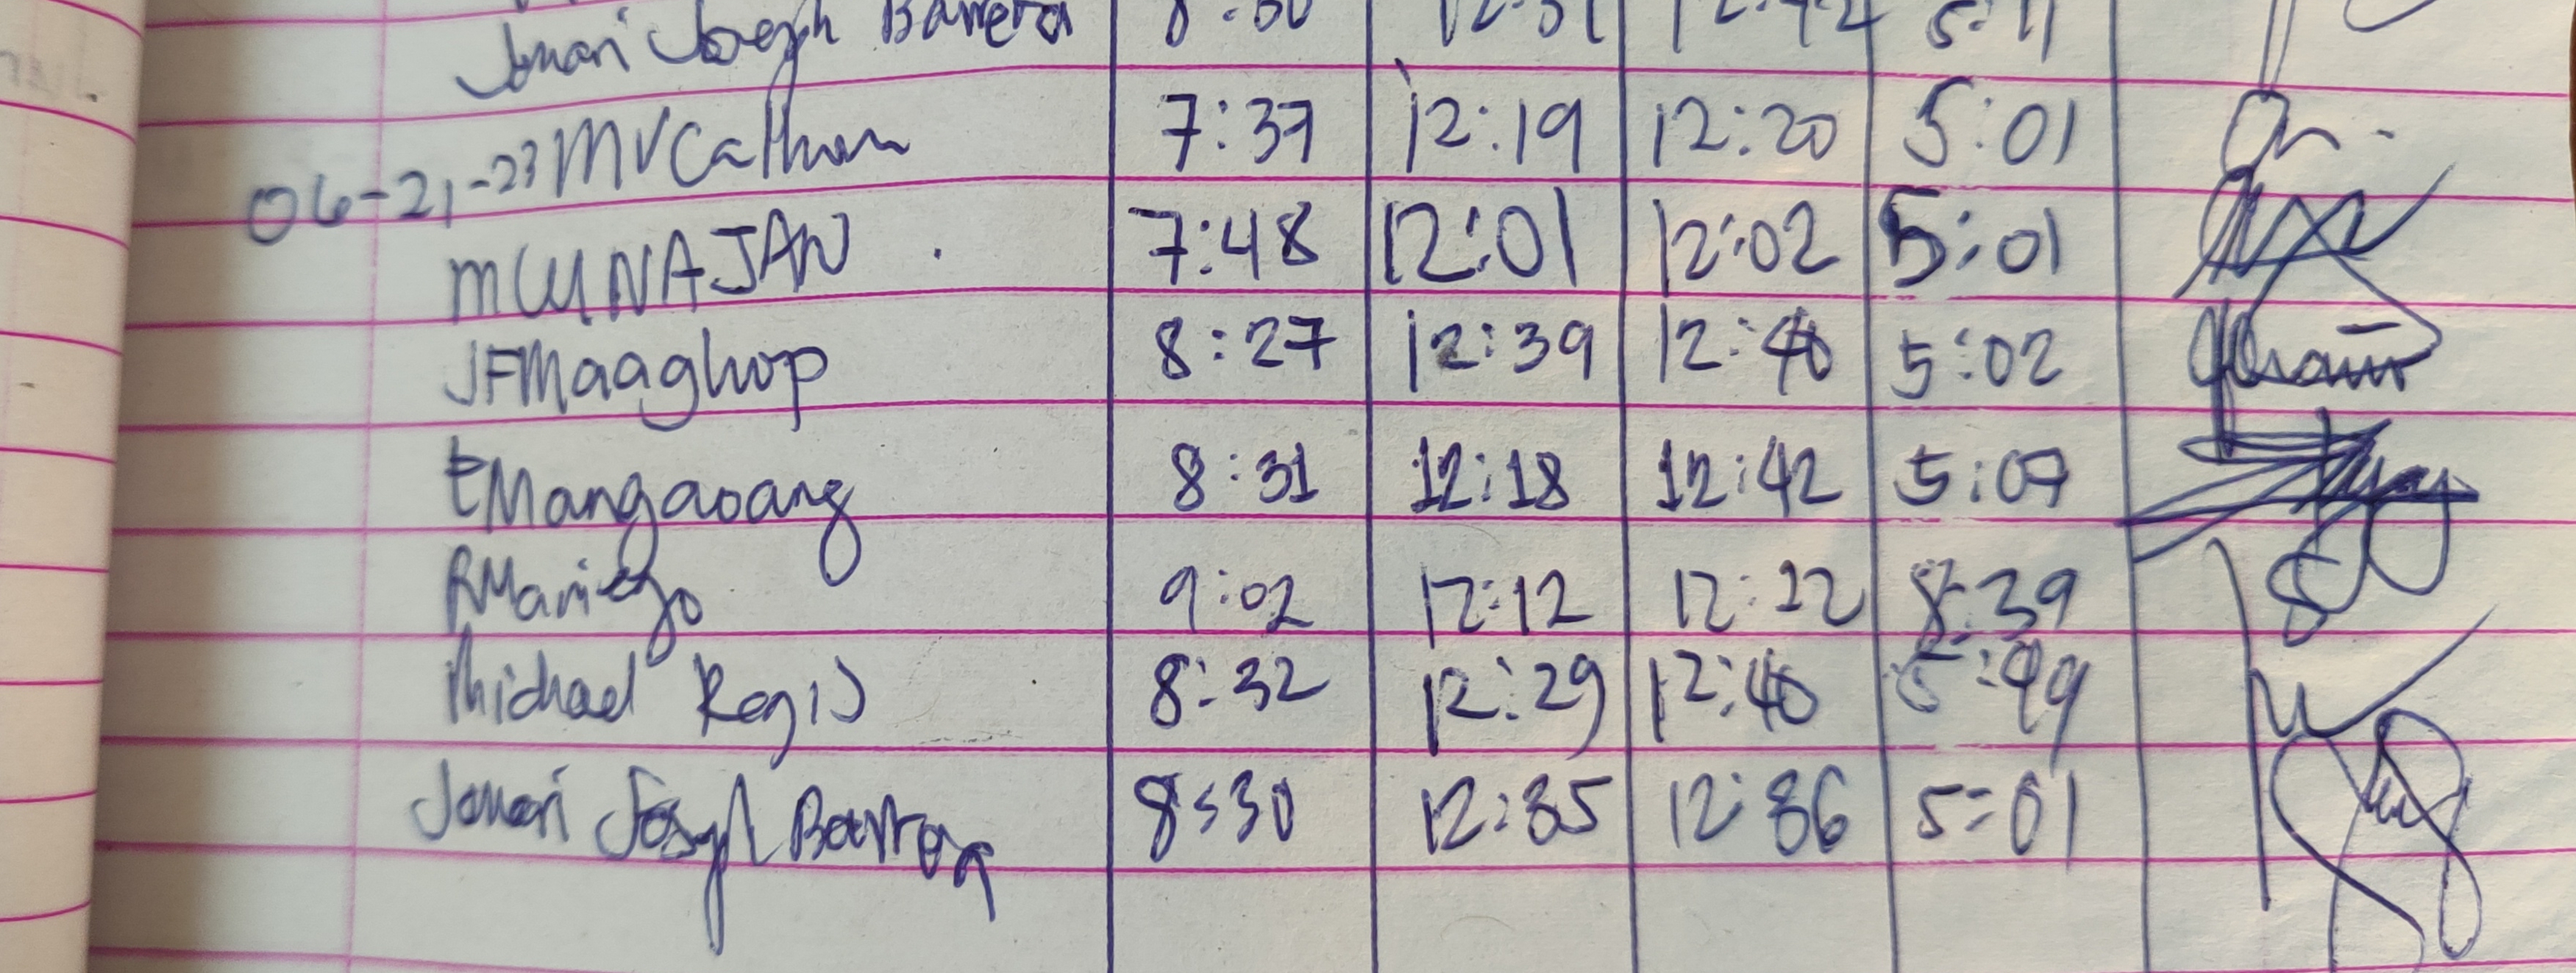 Jomari Joseph Barrera 8:30 12:31 12:42 5:11
06-21-23 MVCalhan 7:37 12:19 12:20 5:01
MCUNAJAN 7:48 12:01 12:02 5:01
JFMaaghop 8:27 12:39 12:40 5:02
EMangaoang 8:31 12:18 12:42 5:07
RMariego 9:02 12:12 12:22 8:39
Michael Regis 8:32 12:29 12:40 5:49
Jomari Joseph Barrera 8:30 12:35 12:36 5:01